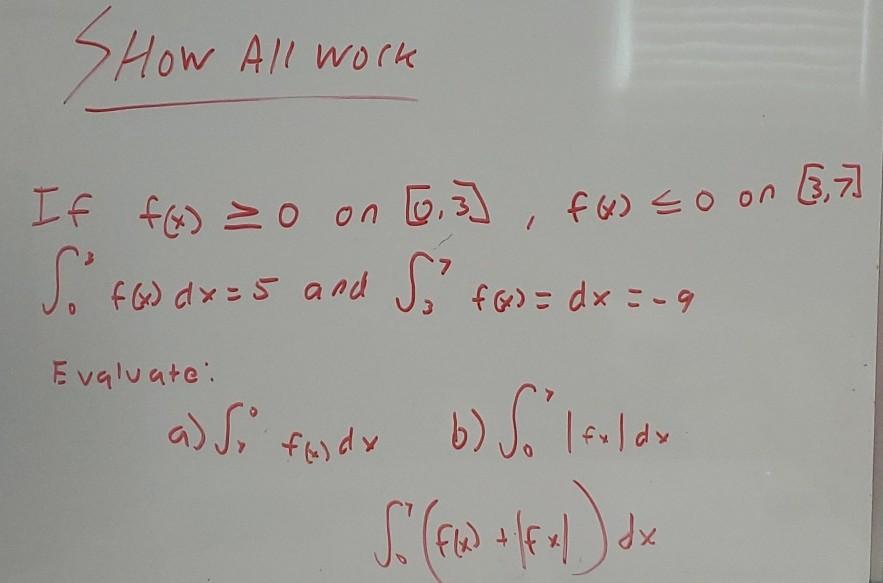 SHow All work
If f(x) ≥ 0 on [0,3] , f(x) ≤ 0 on [3,7]
∫₀³ f(x) dx = 5 and ∫₃⁷ f(x) = dx = -9
Evaluate:
a) ∫₇⁰ f(x) dx b) ∫₀⁷ |fx| dx
∫₀⁷ (f(x) + |fx|) dx